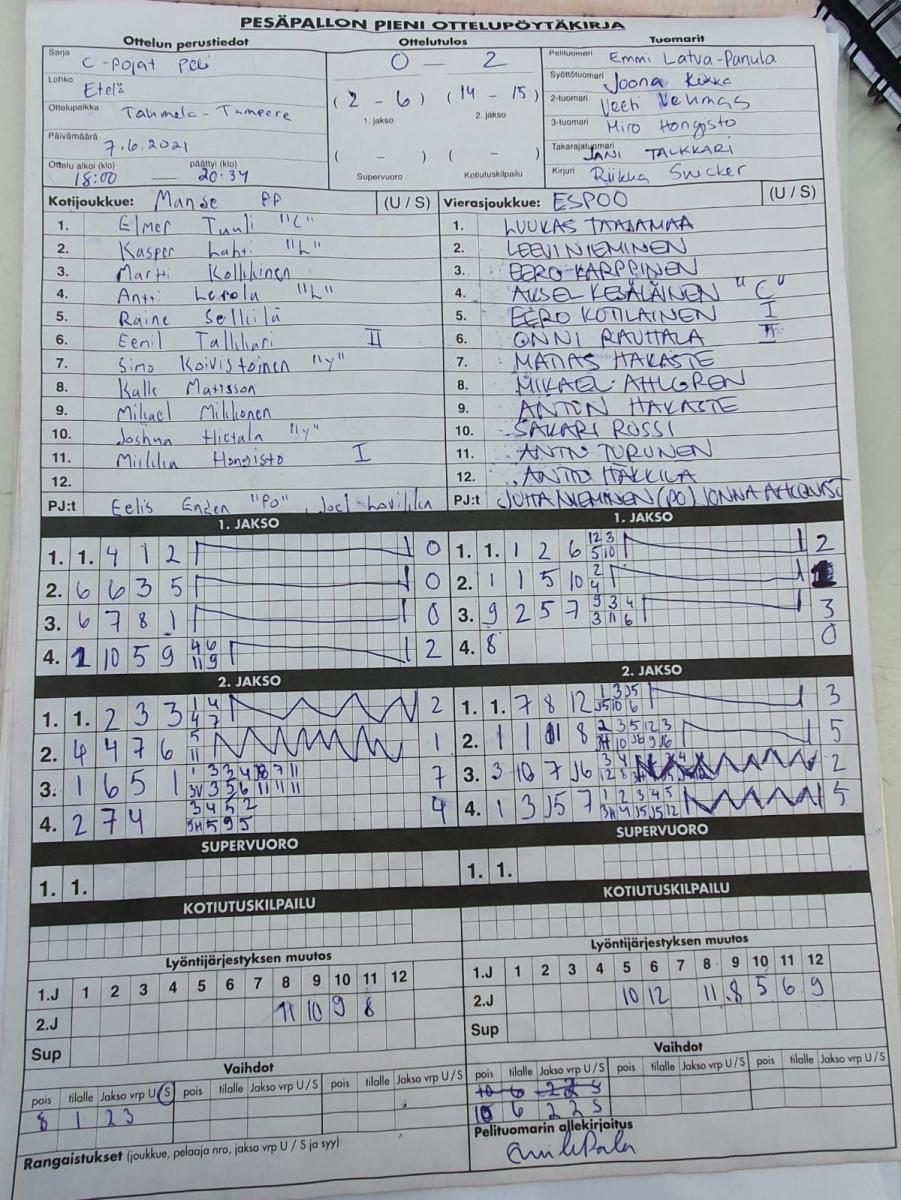 PESÄPALLON PIENI OTTELUPÖYTÄKIRJA
Ottelun perustiedot
Sarja
C-pojat
Lohko
Etelä
Ottelupaikka
Tahmela - Tampere
Päivämäärä
7.6.2021
Ottelu alkoi (klo) päättyi (klo)
18:00 — 20.34
Ottelutulos
0 — 2
(2 - 6) (14 - 15)
1. jakso 2. jakso
( - ) ( - )
Supervuoro Kotiutuskilpailu
Tuomarit
Pelituomari Emmi Latva-Panula
Syöttötuomari Joona Kukka
2-tuomari Veeti Vehmas
3-tuomari Miro Hongisto
Takarajatuomari JANI TALKKARI
Kirjuri Riikka Swicker
Kotijoukkue: Manse PP (U / S)
1. Elmer Tuuli "C"
2. Kasper Lahti "L"
3. Martti Kolkkinen
4. Antti Lerola "L"
5. Raine Sellilä
6. Eemil Talkkari II
7. Simo Koivistoinen "y"
8. Kalle Matisson
9. Mikael Mikkonen
10. Joshua Hietala "y"
11. Miikka Hongisto I
12.
PJ:t Eelis Enden "PO", Joel
Vierasjoukkue: ESPOO (U / S)
1. LUUKAS TAAJAMAA
2. LEEVI NIEMINEN
3. EERO KARPPINEN
4. AKSEL KESÄLÄINEN "C"
5. EERO KOTILAINEN I
6. ONNI RAUTTALA II
7. MATIAS HAKASTE
8. MIKAEL AHLGREN
9. ANTON HAKASTE
10. SAKARI ROSSI
11. ANTTI TURUNEN
12. ANTTO HAKKILA
PJ:t JUHA NIEMINEN (PO) JONNA AHLQVIST
1. JAKSO
1. 1. 4 1 2 0
2. 6 6 3 5 0
3. 6 7 8 1 0
4. 1 10 5 9 4 6 2
11 9
1. JAKSO
1. 1. 1 2 6 12 3 2
5 10
2. 1 1 5 10 2 1
4
3. 9 2 5 7 9 3 4 3
3 11 6
4. 8 0
2. JAKSO
1. 1. 2 3 3 1 4 2
4 7
2. 4 4 7 6 5 1
11
3. 1 6 5 1 7
4. 2 7 4 3 4 5 2 4
JH 5 9 5
2. JAKSO
1. 1. 7 8 12 1 3 J5 3
J5 10 6
2. 1 1 11 8 2 3 5 12 3 5
3. 3 10 7 J6 2
4. 1 3 J5 7 1 2 3 4 5 5
SUPERVUORO
1. 1.
SUPERVUORO
1. 1.
KOTIUTUSKILPAILU
KOTIUTUSKILPAILU
Lyöntijärjestyksen muutos
1.J 1 2 3 4 5 6 7 8 9 10 11 12
2.J 11 10 9 8
Sup
Lyöntijärjestyksen muutos
1.J 1 2 3 4 5 6 7 8 9 10 11 12
2.J 10 12 11 8 5 6 9
Sup
Vaihdot
pois tilalle Jakso vrp U / S pois tilalle Jakso vrp U / S pois tilalle Jakso vrp U / S
8 1 2 3
Vaihdot
pois tilalle Jakso vrp U / S pois tilalle Jakso vrp U / S pois tilalle Jakso vrp U / S
10 6 2 2 S
10 6 2 2 S
Rangaistukset (joukkue, pelaaja nro, jakso vrp U / S ja syy)
Pelituomarin allekirjoitus